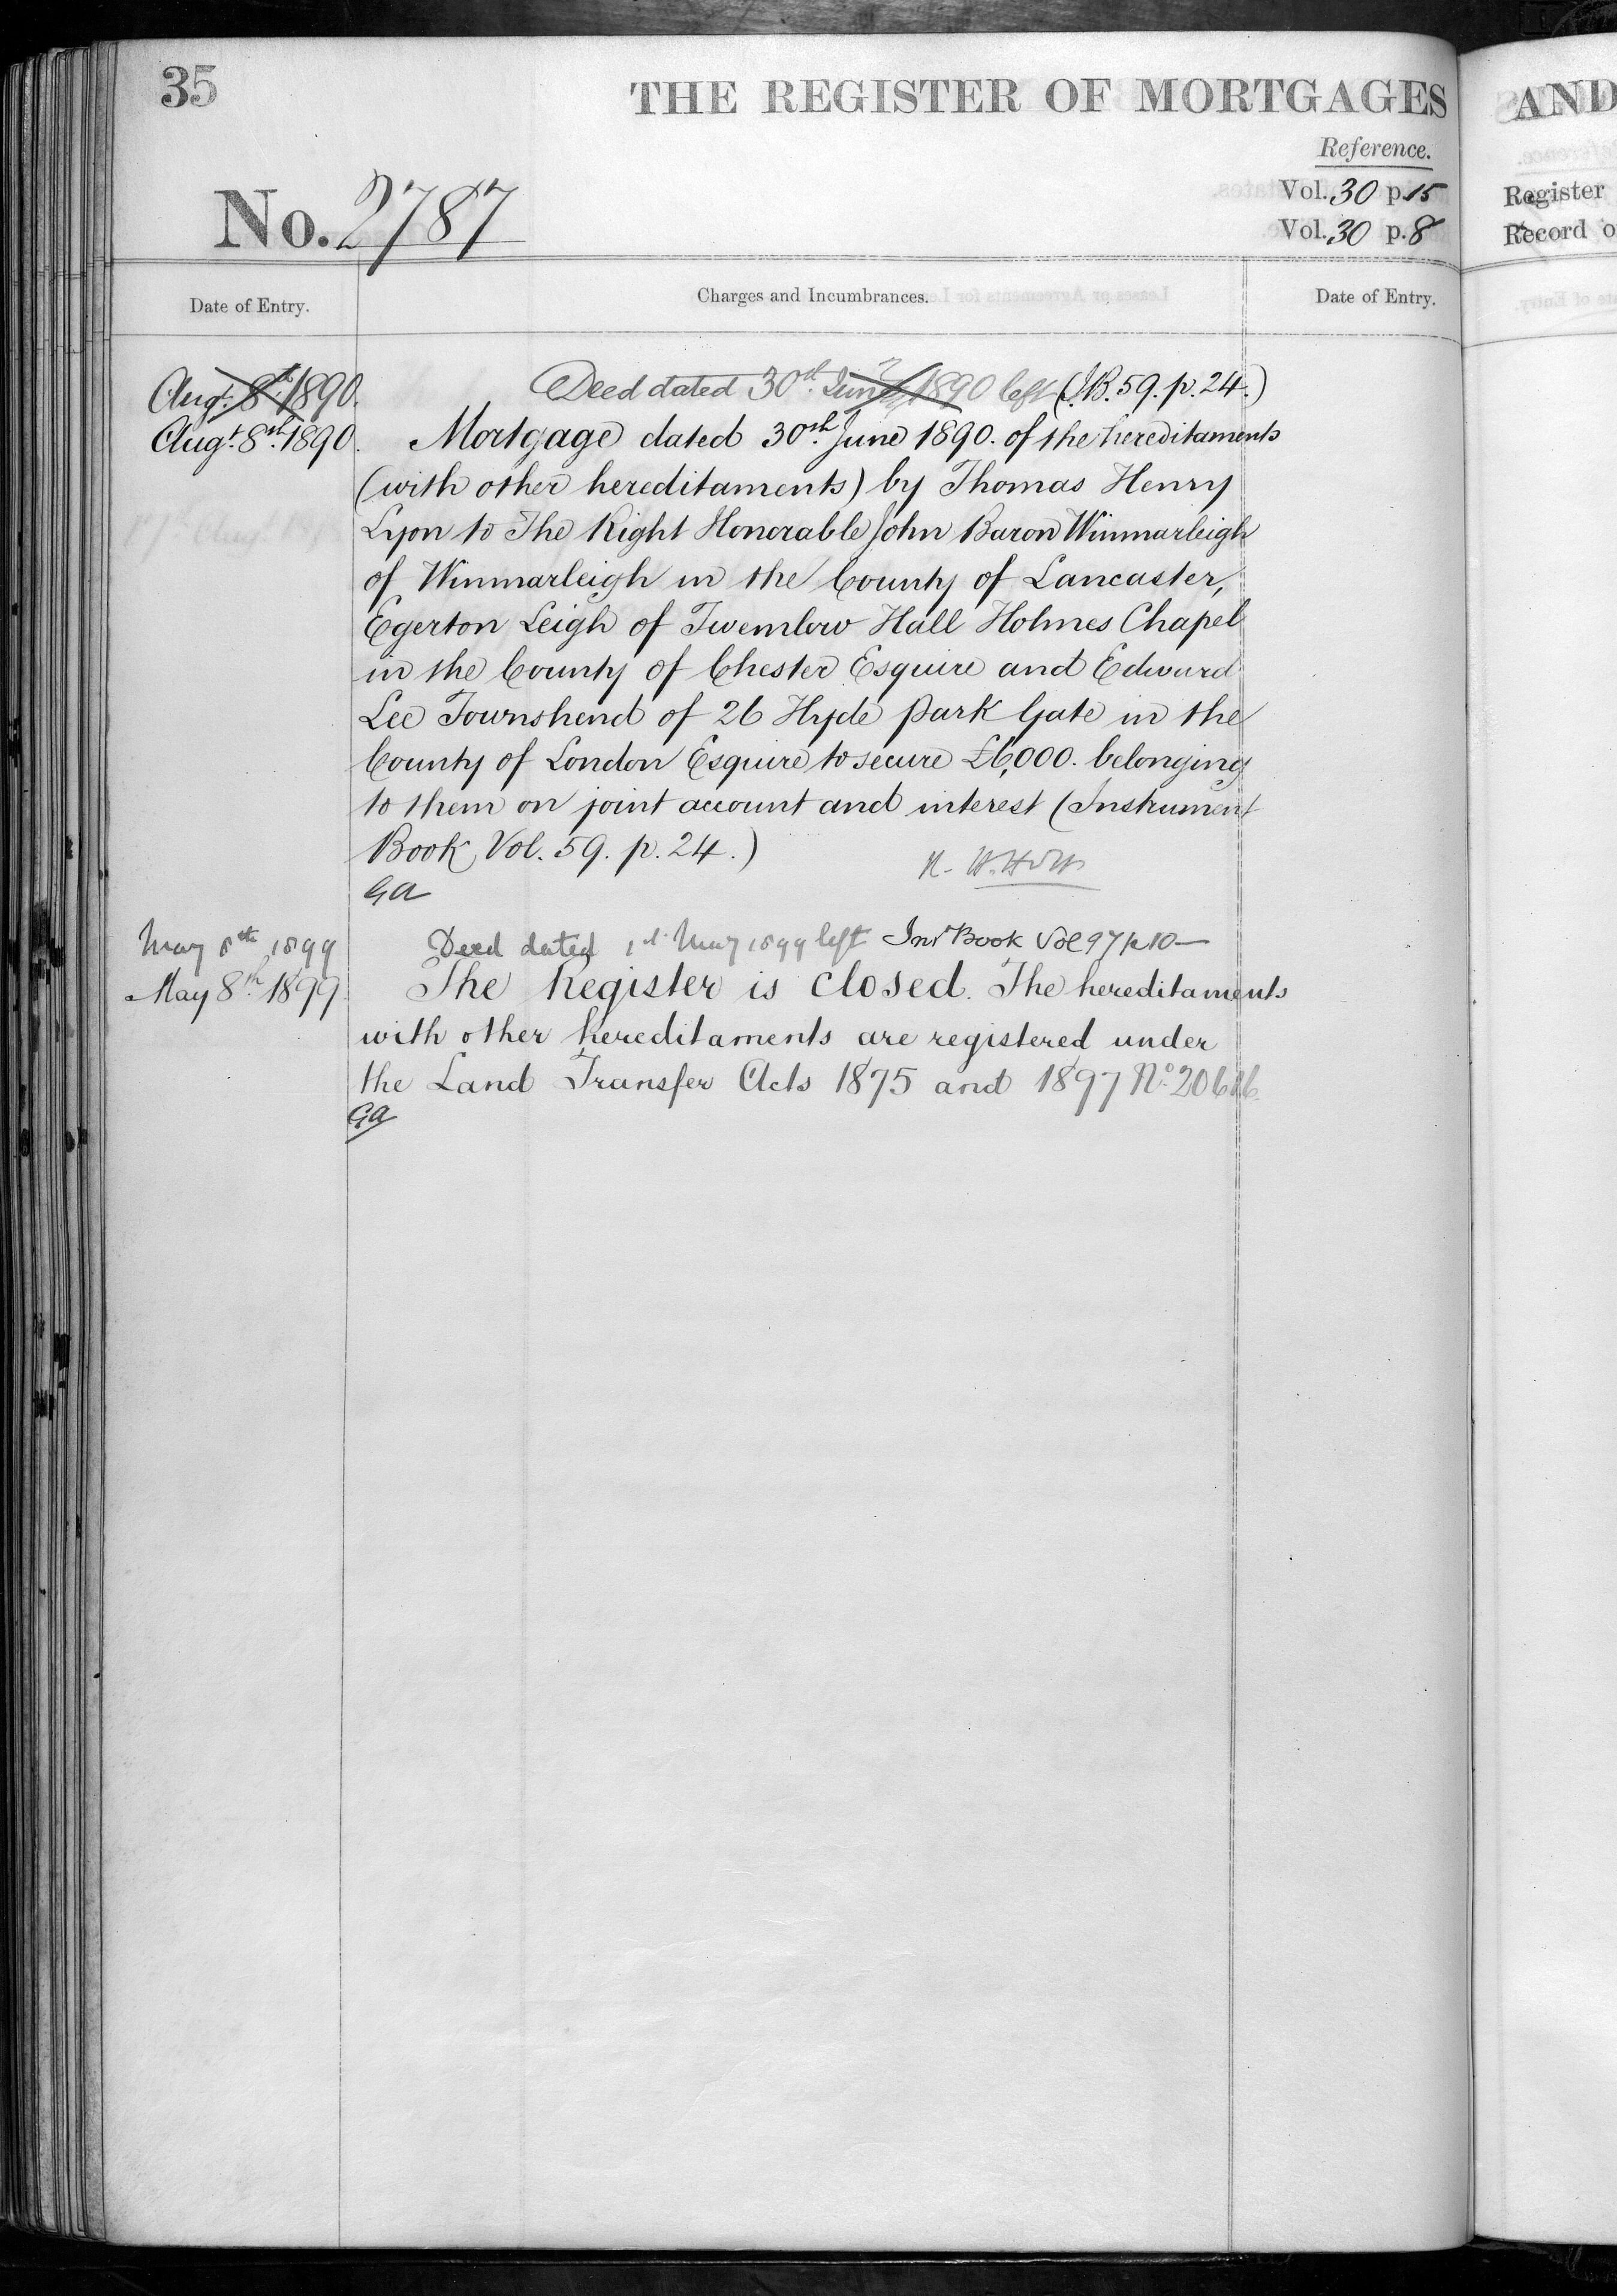 35
THE REGISTER OF MORTGAGES
AND
Reference.
Vol. 30 p. 15
Vol. 30 p. 8
Register
Record o
No. 2787
Date of Entry.
Charges and Incumbrances.
Date of Entry.
Augt. 8th 1890.
Deed dated 30th June 1890 left (I.B. 59. p. 24.)
Augt. 8th 1890.
Mortgage dated 30th June 1890. of the hereditaments
(with other hereditaments) by Thomas Henry
Lyon to The Right Honorable John Baron Winmarleigh
of Winmarleigh in the County of Lancaster,
Egerton Leigh of Twemlow Hall Holmes Chapel
in the County of Chester Esquire and Edward
Lee Townshend of 26 Hyde Park Gate in the
County of London Esquire to secure £6,000. belonging
to them on joint account and interest (Instrument
Book, Vol. 59. p. 24.)
GA
May 8th 1899
Deed dated 1st May 1899 left Inst Book Vol 97 p 10—
May 8th 1899
The Register is closed. The hereditaments
with other hereditaments are registered under
the Land Transfer Acts 1875 and 1897 No.
GA